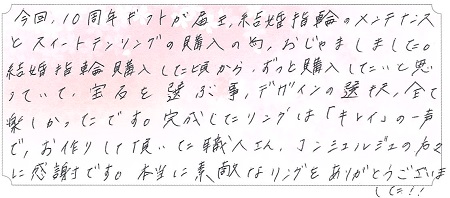 今回、10周年ギフトが届き、結婚指輪のメンテナンス
とスイートテンリングの購入の為、おじゃましました。
結婚指輪購入した頃から、ずっと購入したいと思
っていて、宝石を選ぶ事、デザインの選択、全て
楽しかったです。完成したリングは「キレイ」の一声
で、お作りして頂いた職人さん、コンシェルジュの方々
に感謝です。本当に素敵なリングをありがとうございま
した!!